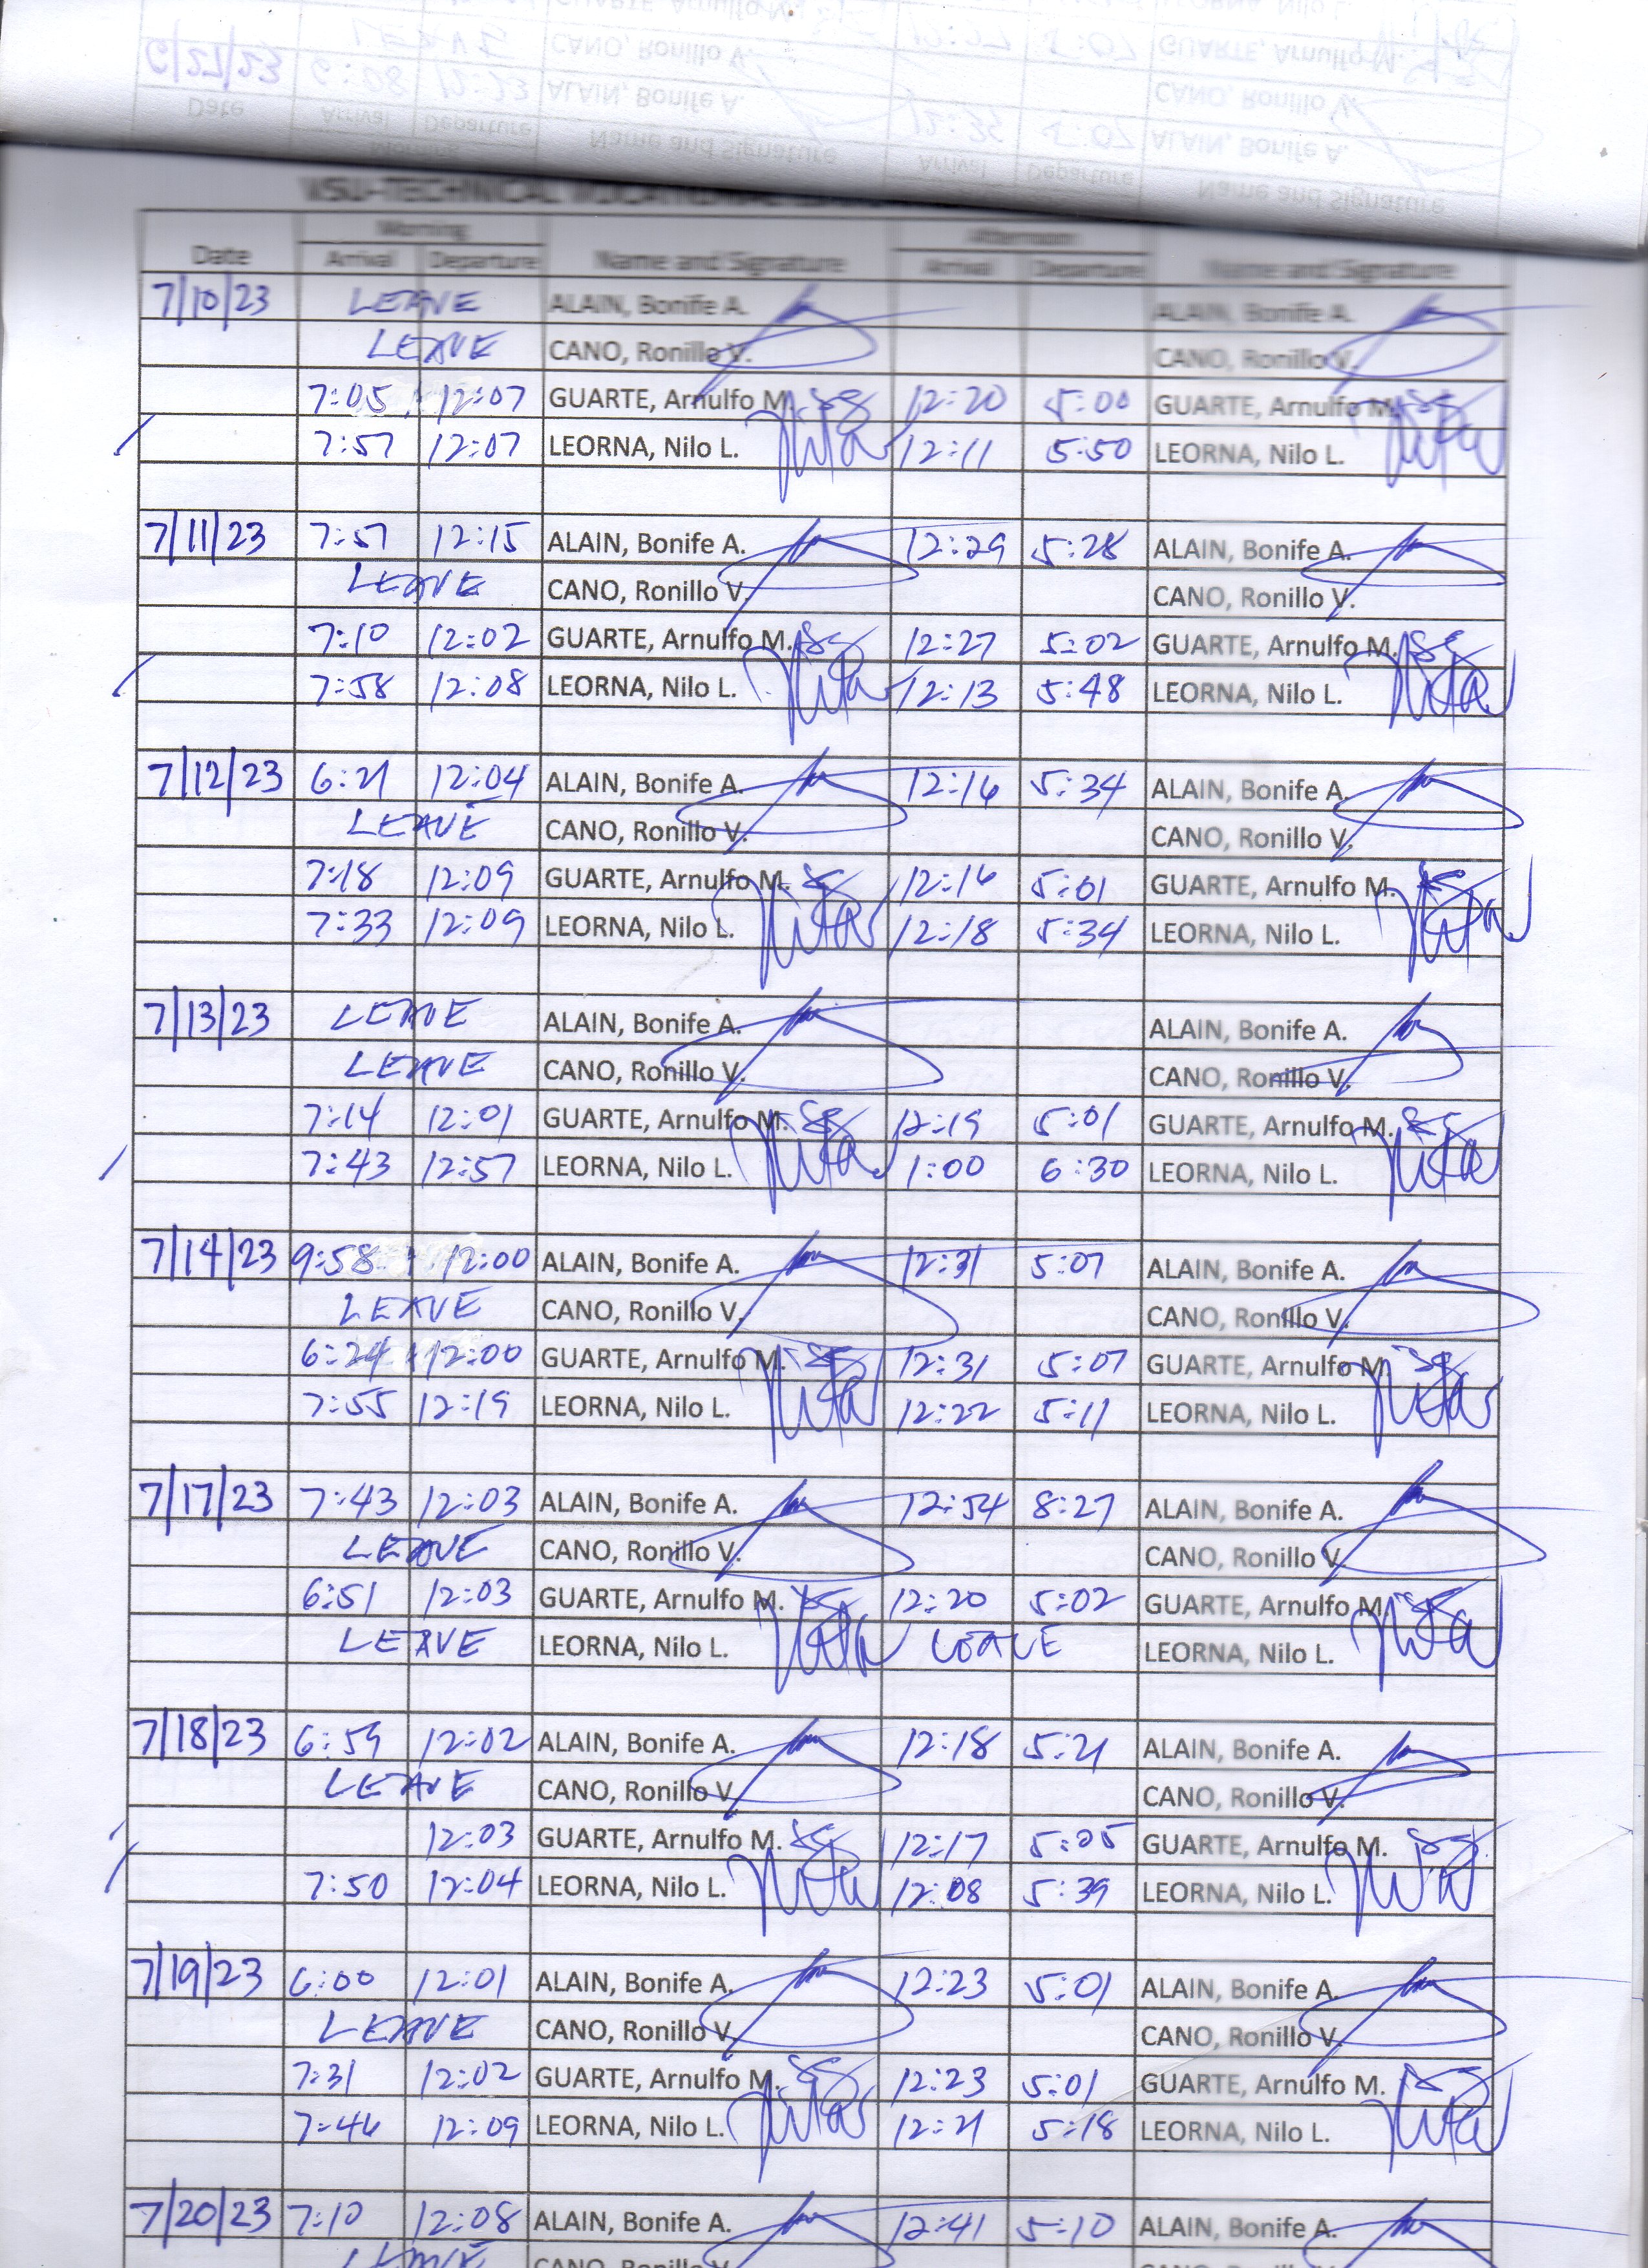 6/27/23 12:33 ALAIN, Bonife A. 5:07 ALAIN, Bonife A.
LEAVE CANO, Ronillo V. CANO, Ronillo V.
GUARTE, Arnulfo M. 5:07 GUARTE, Arnulfo M.
LEORNA, Nilo L.
Date Arrival Departure Name and Signature Arrival Departure Name and Signature
VSU-TECHNICAL
Morning Afternoon
Date Arrival Departure Name and Signature Arrival Departure Name and Signature
7/10/23 LEAVE ALAIN, Bonife A. ALAIN, Bonife A.
LEAVE CANO, Ronillo V. CANO, Ronillo V.
7:05 12:07 GUARTE, Arnulfo M. 12:20 5:00 GUARTE, Arnulfo M.
7:57 12:07 LEORNA, Nilo L. 12:11 5:50 LEORNA, Nilo L.
7/11/23 7:57 12:15 ALAIN, Bonife A. 12:29 5:28 ALAIN, Bonife A.
LEAVE CANO, Ronillo V. CANO, Ronillo V.
7:10 12:02 GUARTE, Arnulfo M. 12:27 5:02 GUARTE, Arnulfo M.
7:58 12:08 LEORNA, Nilo L. 12:13 5:48 LEORNA, Nilo L.
7/12/23 6:21 12:04 ALAIN, Bonife A. 12:16 5:34 ALAIN, Bonife A.
LEAVE CANO, Ronillo V. CANO, Ronillo V.
7:18 12:09 GUARTE, Arnulfo M. 12:16 5:01 GUARTE, Arnulfo M.
7:33 12:09 LEORNA, Nilo L. 12:18 5:34 LEORNA, Nilo L.
7/13/23 LEAVE ALAIN, Bonife A. ALAIN, Bonife A.
LEAVE CANO, Ronillo V. CANO, Ronillo V.
7:14 12:01 GUARTE, Arnulfo M. 12:19 5:01 GUARTE, Arnulfo M.
7:43 12:57 LEORNA, Nilo L. 1:00 6:30 LEORNA, Nilo L.
7/14/23 9:58 12:00 ALAIN, Bonife A. 12:31 5:07 ALAIN, Bonife A.
LEAVE CANO, Ronillo V. CANO, Ronillo V.
6:24 12:00 GUARTE, Arnulfo M. 12:31 5:07 GUARTE, Arnulfo M.
7:55 12:19 LEORNA, Nilo L. 12:22 5:11 LEORNA, Nilo L.
7/17/23 7:43 12:03 ALAIN, Bonife A. 12:54 8:27 ALAIN, Bonife A.
LEAVE CANO, Ronillo V. CANO, Ronillo V.
6:51 12:03 GUARTE, Arnulfo M. 12:20 5:02 GUARTE, Arnulfo M.
LEAVE LEORNA, Nilo L. LEAVE LEORNA, Nilo L.
7/18/23 6:59 12:02 ALAIN, Bonife A. 12:18 5:21 ALAIN, Bonife A.
LEAVE CANO, Ronillo V. CANO, Ronillo V.
12:03 GUARTE, Arnulfo M. 12:17 5:05 GUARTE, Arnulfo M.
7:50 12:04 LEORNA, Nilo L. 12:08 5:39 LEORNA, Nilo L.
7/19/23 6:00 12:01 ALAIN, Bonife A. 12:23 5:01 ALAIN, Bonife A.
LEAVE CANO, Ronillo V. CANO, Ronillo V.
7:31 12:02 GUARTE, Arnulfo M. 12:23 5:01 GUARTE, Arnulfo M.
7:46 12:09 LEORNA, Nilo L. 12:21 5:18 LEORNA, Nilo L.
7/20/23 7:10 12:08 ALAIN, Bonife A. 12:41 5:10 ALAIN, Bonife A.
LEAVE CANO, Ronillo V. CANO, Ronillo V.